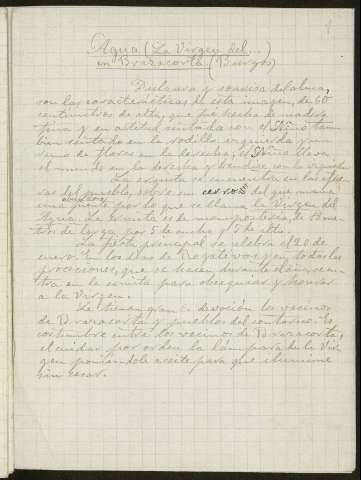 1
Agua (La Virgen del...)
en Brazacorta (Burgos)
Dulzura y sonrisa del alma,
son las características de esta imagen, de 60
centímetros de alta, que fue hecha de madera
fina y en actitud sentada con el Niño tam-
bien sentado en la rodilla izquierda y un
ramo de flores en la derecha; el Niño lleva
el mundo en la
La ermita se encuentra en las afue-
ras del pueblo, sobre un cerro del que mana
abundosa
una fuente por lo que se llama la Virgen del
Agua. La ermita es de mampostería, de 8 me-
tros de larga por 5 de ancha y 5 de alta.
La fiesta principal se celebra el 20 de
enero. En los días de Rogativas y en todas las
procesiones, que se hacen durante el año, se en-
tra en la ermita para obsequiar y honrar
a la Virgen.
Le tienen gran devoción los vecinos
de Brazacorta y pueblos del contorno. Es
costumbre entre los vecinos de Brazacorta,
el cuidar por orden la lámpara de la Vir-
gen poniéndole aceite para que ilumine
sin cesar.